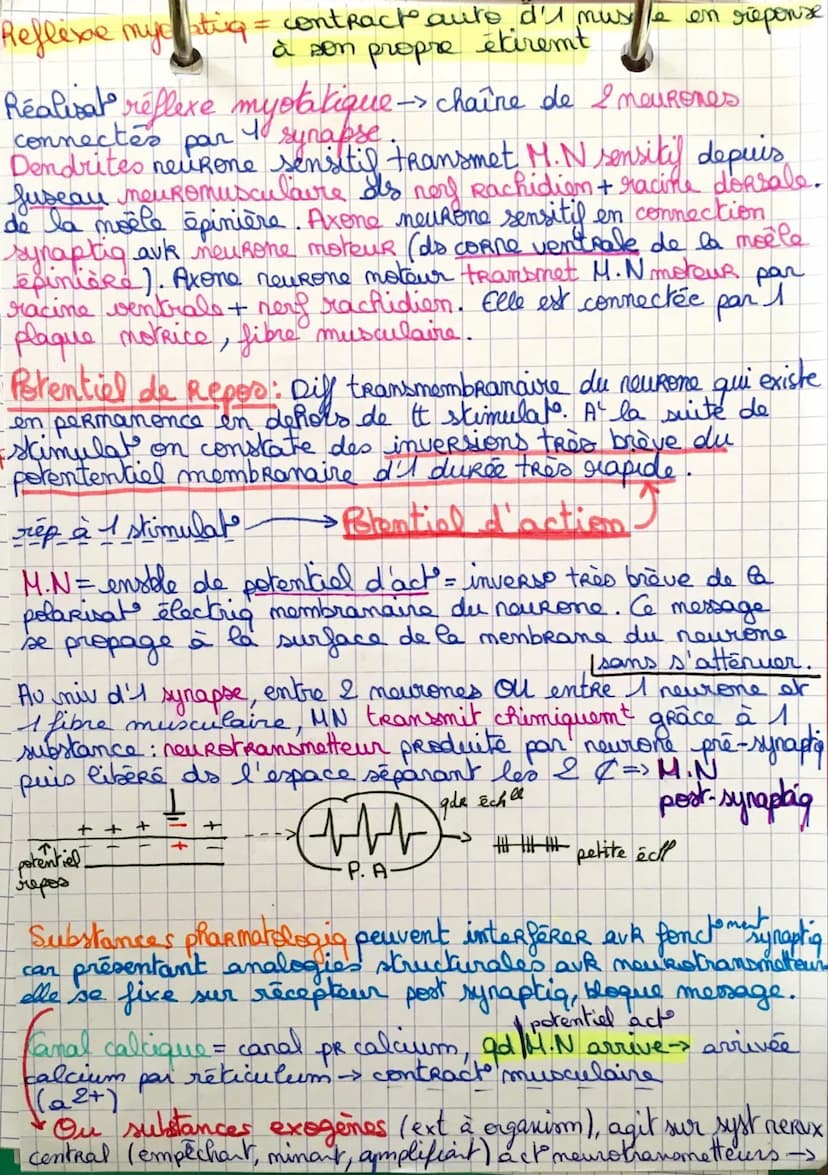 Réflexe myotatiq = contract° auto d'1 muscle en réponse
à son propre étiremt
Réalisat° réflexe myotatique → chaîne de 2 neurones
connectés par 1 synapse.
Dendrites neurone sensitif transmet M.N sensitif depuis
fuseau neuromusculaire ds nerf Rachidien + racine dorsale.
de la moële épinière. Axone neurone sensitif en connection
synaptiq avk neurone moteur (ds corne ventrale de la moële
épinière). Axone neurone moteur transmet M.N moteur par
racine ventrale + nerf rachidien. Elle est connectée par 1
plaque motrice, fibre musculaire.
Potentiel de Repos : Diff transmembranaire du neurone qui existe
en permanence en dehors de tt stimulat°. A la suite de
stimulat° on constate des inversions très brève du
potentientiel membranaire d'1 durée très rapide.
rép à 1 stimulat° → Potentiel d'action
M.N = ensble de potentiel d'act° = inverso très brève de la
polarisat° électriq membranaire du neurone. Ce message
se propage à la surface de la membrane du neurone
sans s'atténuer.
Au niv d'1 synapse, entre 2 neurones OU entre 1 neurone et
1 fibre musculaire, MN transmit chimiquemt grâce à 1
substance : neurotransmetteur produite par neurone pré-synaptiq
puis libéré ds l'espace séparant les 2 ₵ => M.N
post-synaptiq
+ + + − +
− − − + −
potentiel
repos
P.A
gde éch^lle
petite éch^ll
Substances pharmatologiq peuvent interférer avk fonct°ment synaptiq
car présentant analogies structurales avk neurotransmetteur
elle se fixe sur récepteur post synaptiq, bloque message.
potentiel act°
Canal calcique = canal pr calcium, qd M.N arrive → arrivée
calcium par réticulum → contract° musculaire
(a2+)
Ou substances exogènes (ext à organism), agit sur syst nerux
central (empêchant, minant, amplifiant) act° neurotransmetteurs →